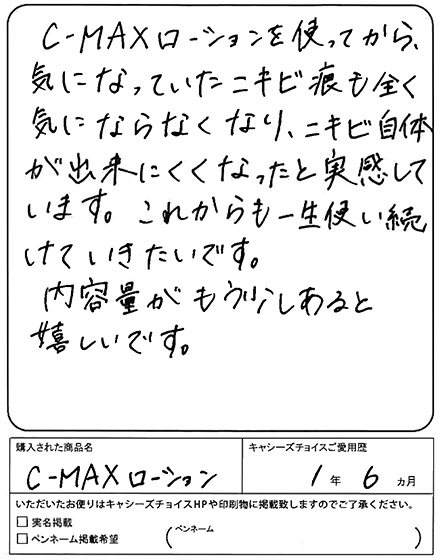 C-MAXローションを使ってから、
気になっていたニキビ痕も全く
気にならなくなり、ニキビ自体
が出来にくくなったと実感して
います。これからも一生使い続
けていきたいです。
内容量がもう少しあると
嬉しいです。
購入された商品名
キャシーズチョイスご愛用歴
C-MAXローション
1年6ヵ月
いただいたお便りはキャシーズチョイスHPや印刷物に掲載致しますのでご了承ください。
□ 実名掲載
□ ペンネーム掲載希望
(ペンネーム